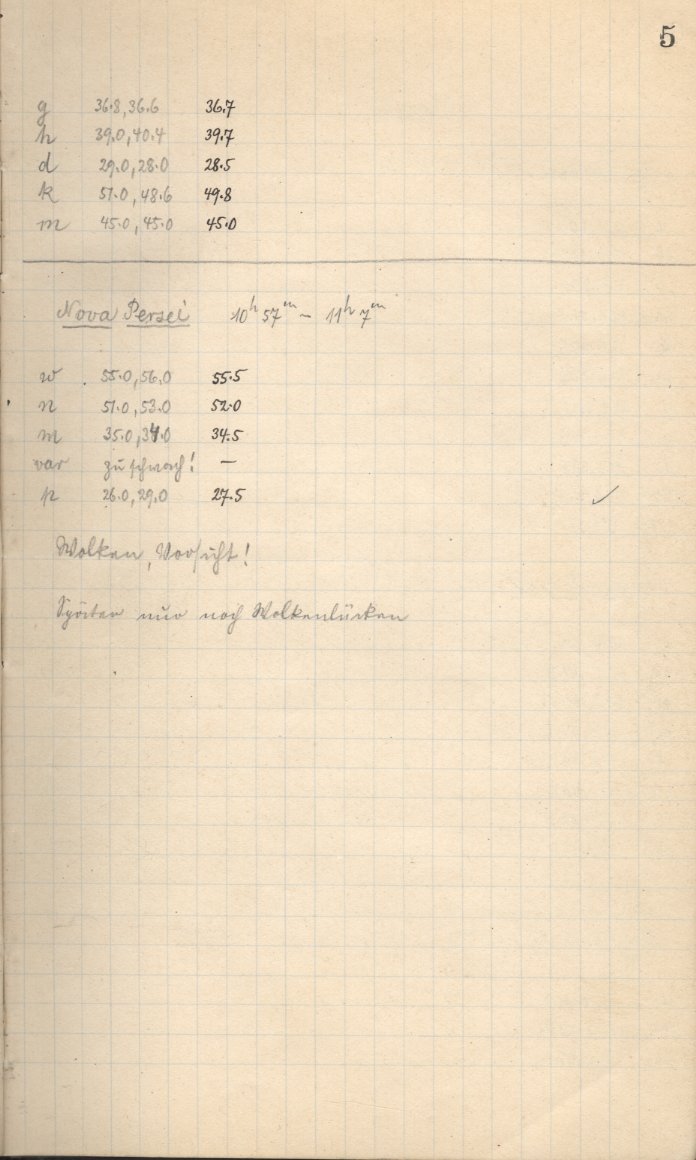 5
g 36.8, 36.6 36.7
h 39.0, 40.4 39.7
d 29.0, 28.0 28.5
k 51.0, 48.6 49.8
m 45.0, 45.0 45.0
Nova Persei 10h 57m – 11h 7m
w 55.0, 56.0 55.5
n 51.0, 53.0 52.0
m 35.0, 34.0 34.5
var zu schwach! –
p 26.0, 29.0 27.5 ✓
Wolken, Vorsicht!
Später nur noch Wolkenlücken